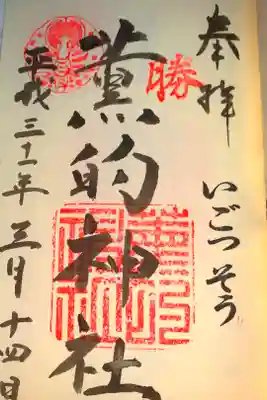 奉拝 いごっそう
勝
薫的神社
平成三十一年三月十四日